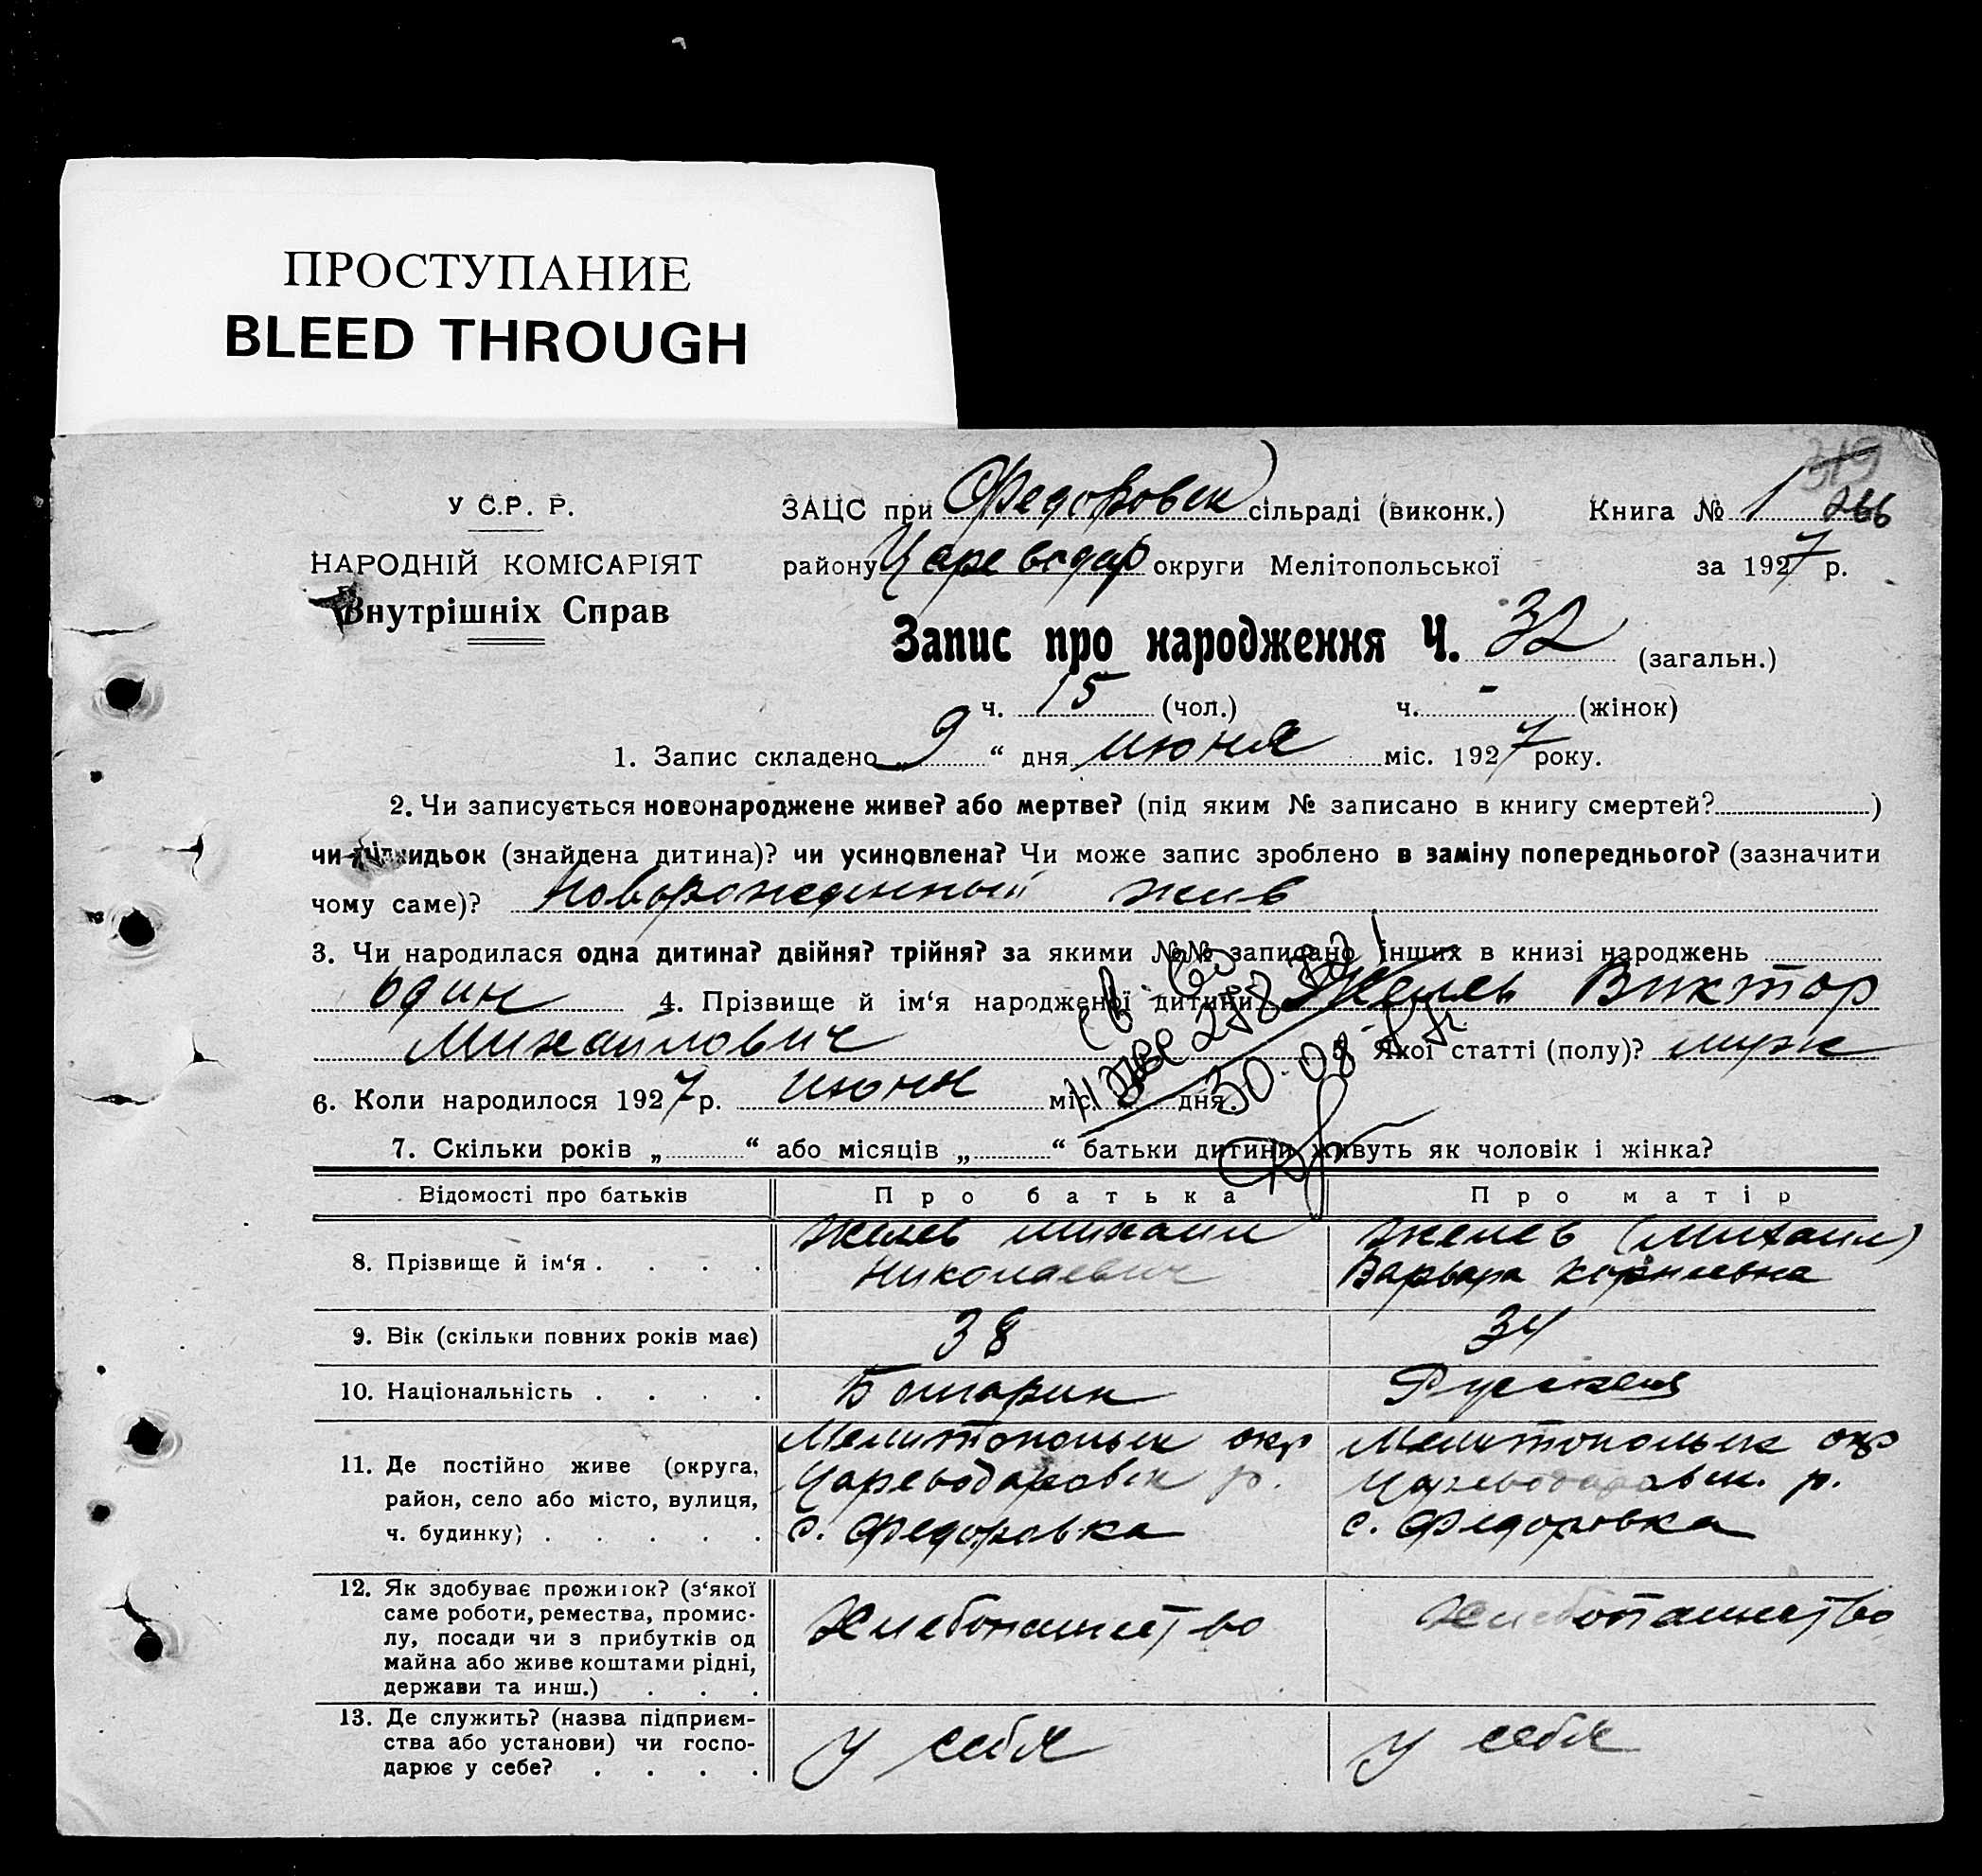 ПРОСТУПАНИЕ
BLEED THROUGH
319
У С.Р. Р.
ЗАЦС при Федоровск сільраді (виконк.) Книга № 1 266
НАРОДНІЙ КОМІСАРІЯТ
району Цареводар округи Мелітопольської за 1927 р.
Внутрішніх Справ
Запис про народження Ч. 32 (загальн.)
ч. 15 (чол.) ч. - (жінок)
1. Запис складено „ 9 “ дня июня міс. 1927 року.
2. Чи записується новонароджене живе? або мертве? (під яким № записано в книгу смертей? )
чи підкидьок (знайдена дитина)? чи усиновлена? Чи може запис зроблено в заміну попереднього? (зазначити
чому саме)? Новорожденный жив
3. Чи народилася одна дитина? двійня? трійня? за якими №№ записано інших в книзі народжень
один 4. Прізвище й ім‘я народженої дитини Желев Виктор
Михайлович 5. Якої статті (полу)? муж
6. Коли народилося 1927 р. июня міс. дня.
30.08
7. Скільки років „ “ або місяців „ “ батьки дитини живуть як чоловік і жінка?
Відомості про батьків Про батька Про матір
8. Прізвище й ім‘я . . . . Желев Михаил Желев (Михаил)
Николаевич Варвара Корнеевна
9. Вік (скільки повних років має) 38 34
10. Національність . . . . Болгарин Русская
Мелитопольск окр Мелитопольск окр
11. Де постійно живе (округа, Цареводаровск р. Цареводаровск. р.
район, село або місто, вулиця,
ч. будинку) . . . . . с. Федоровка с. Федоровка
12. Як здобуває прожиток? (з‘якої
саме роботи, ремества, промис-
лу, посади чи з прибутків од Хлебопашество Хлебопашество
майна або живе коштами рідні,
держави та инш.) . . .
13. Де служить? (назва підприєм-
ства або установи) чи госпо- у себя у себя
дарює у себе? . . . .